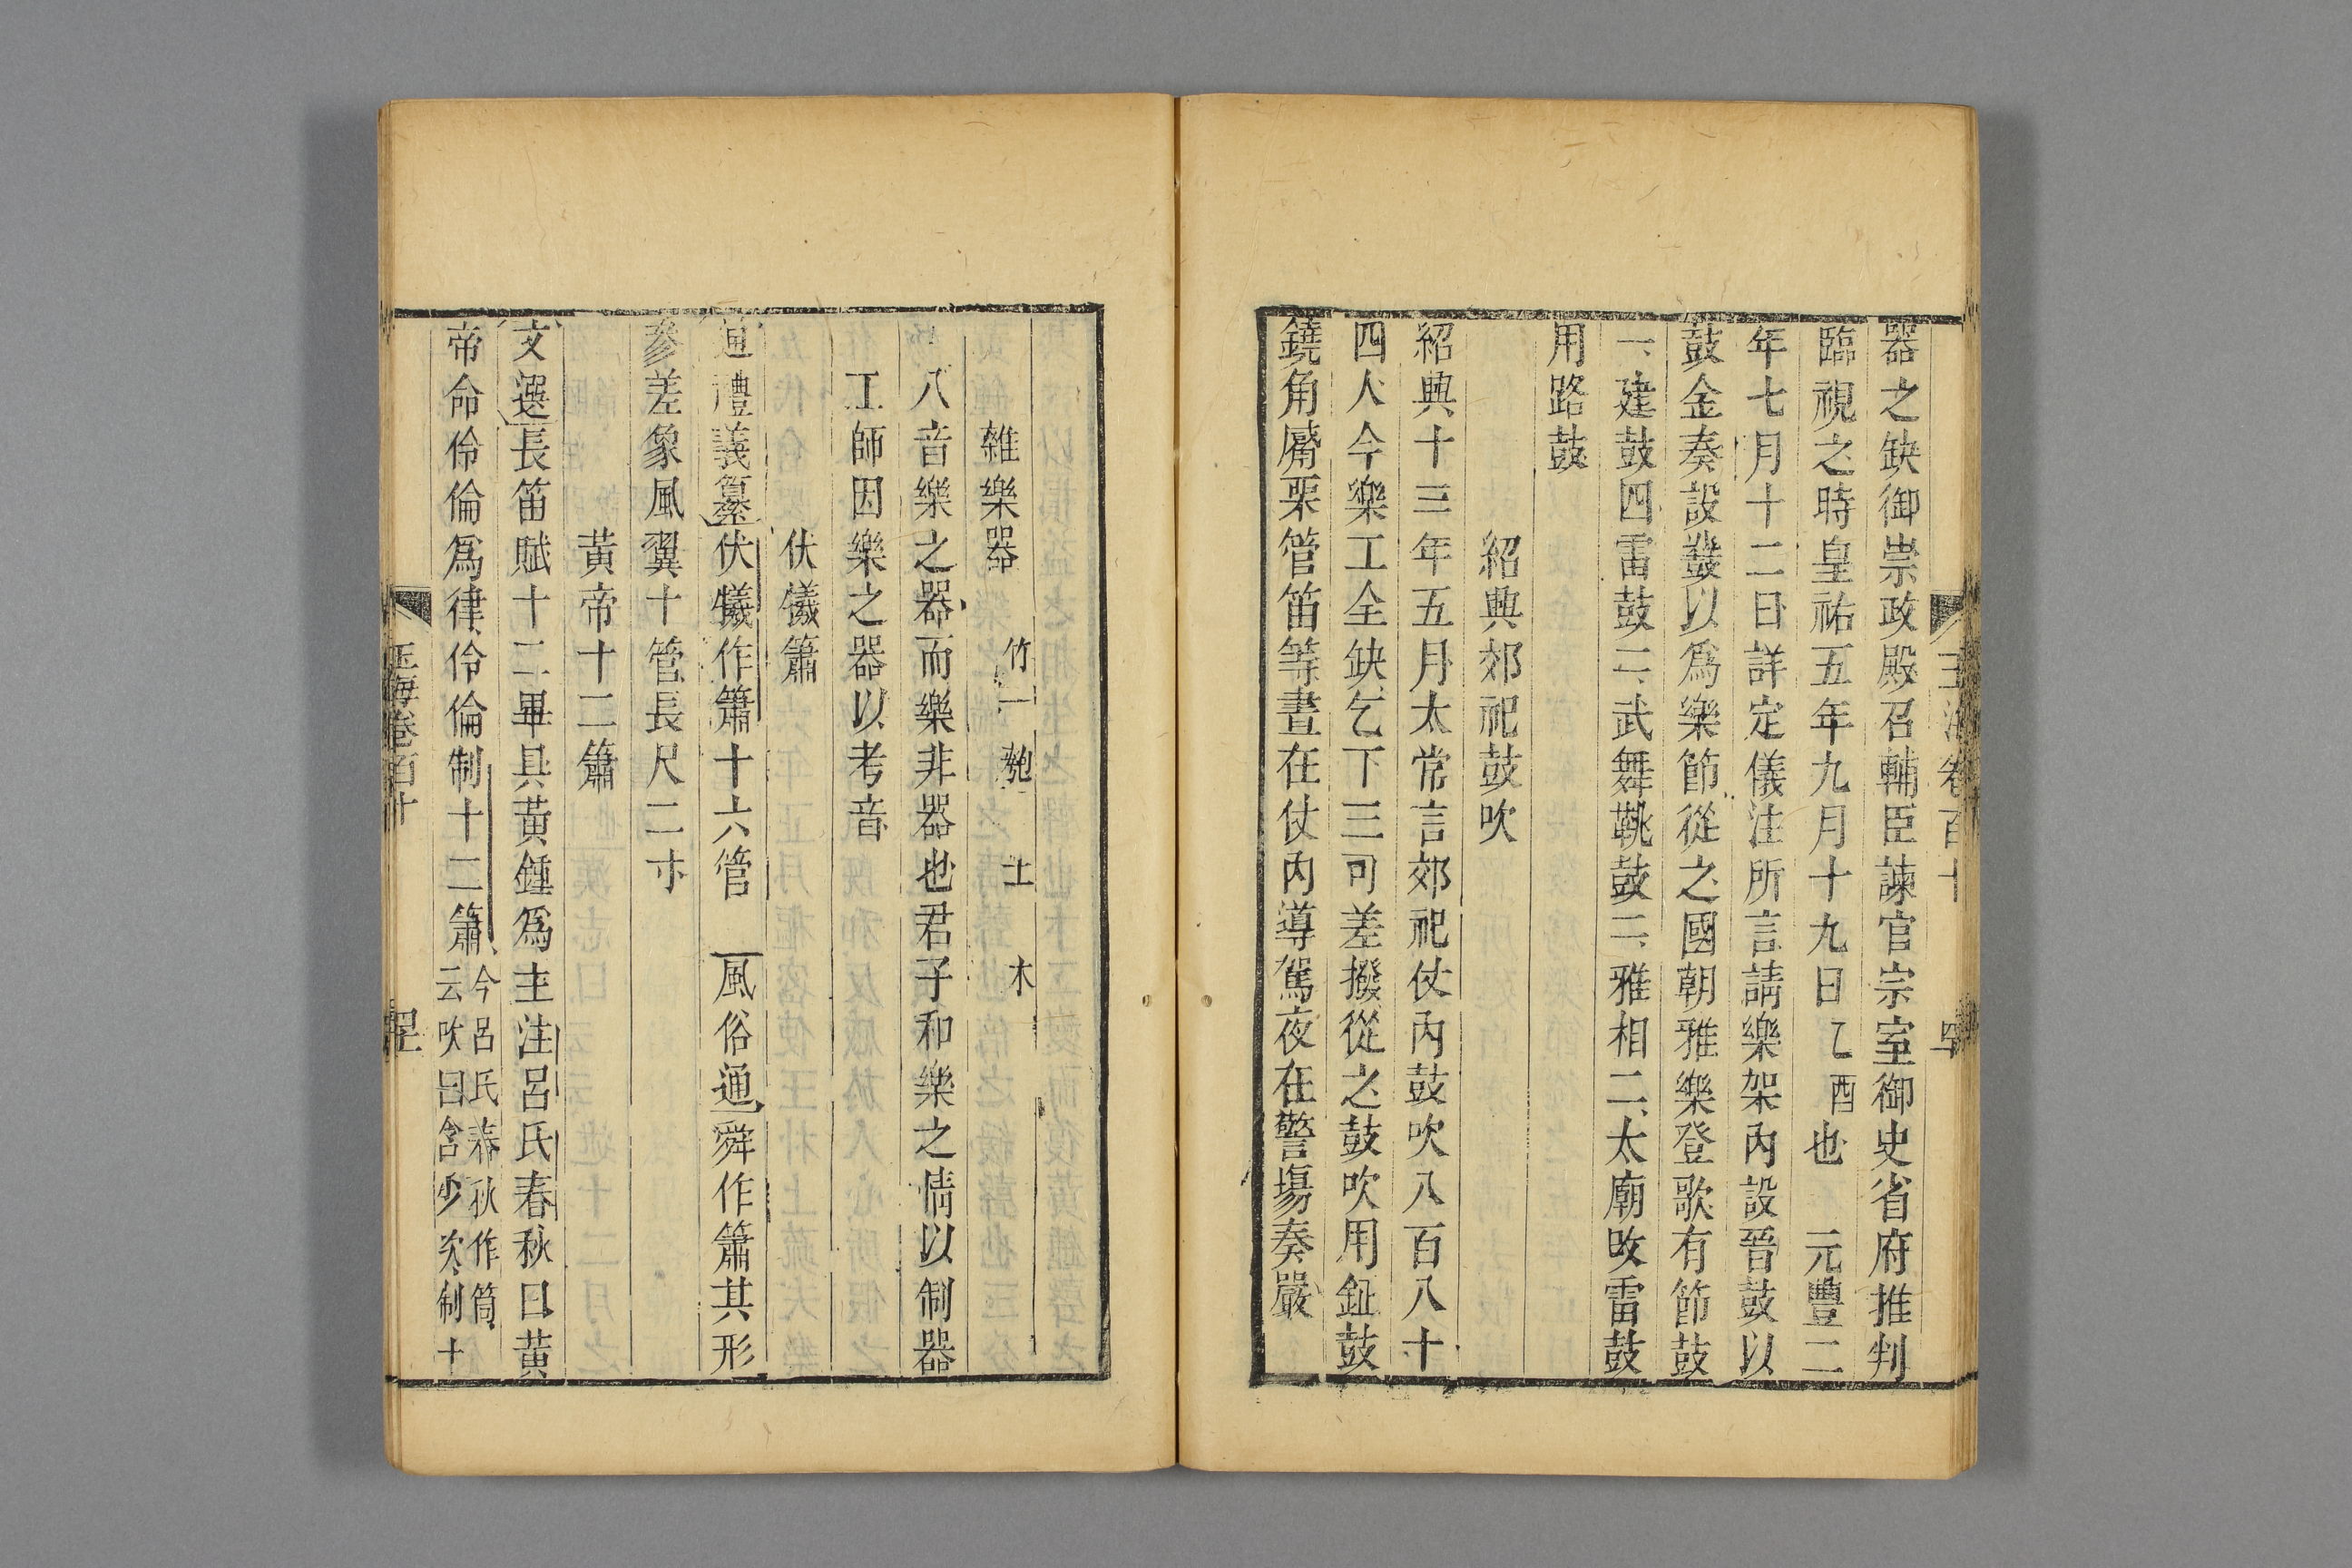 器之缺御崇政殿召輔臣諫官宗室御史省府推判
臨視之時皇祐五年九月十九日乙酉也 元豐二
年七月十二日詳定儀注所言請樂架內設晉鼓以
鼓金奏設鼗以爲樂節從之國朝雅樂登歌有節鼓
一建鼓四雷鼓二武舞鞉鼓二雅相二太廟改雷鼓
用路鼓
紹興郊祀鼓吹
紹興十三年五月太常言郊祀仗內鼓吹八百八十
四人今樂工全缺乞下三司差撥從之鼓吹用鉦鼓
鐃角觱栗管笛等晝在仗內導駕夜在警場奏嚴
雜樂器 竹 匏 土 木
八音樂之器而樂非器也君子和樂之情以制器
工師因樂之器以考音
伏犧簫
通禮義纂伏犧作簫十六管 風俗通舜作簫其形
參差象風翼十管長尺二寸
黃帝十二簫
文選長笛賦十二畢具黃鍾爲主注呂氏春秋曰黃
帝命伶倫爲律伶倫制十二簫今呂氏春秋作筒
云吹曰含少次制十
玉海卷百十